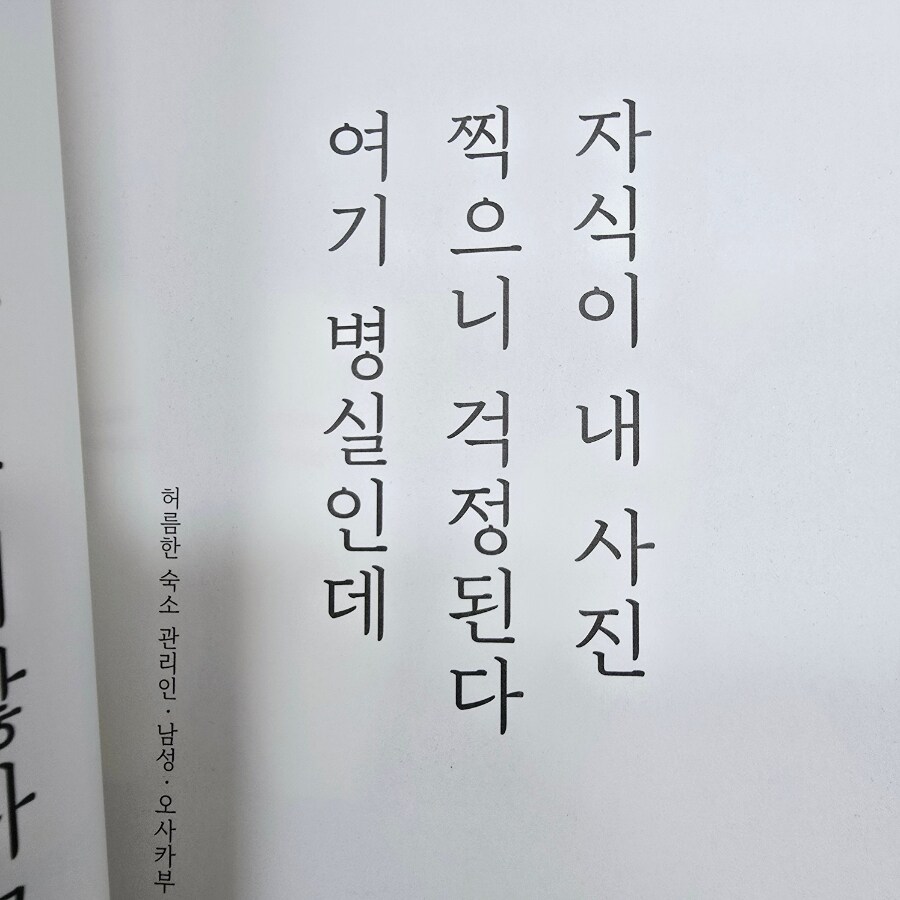 자식이 내 사진
찍으니 걱정된다
여기 병실인데
허름한 숙소 관리인·남성·오사카부